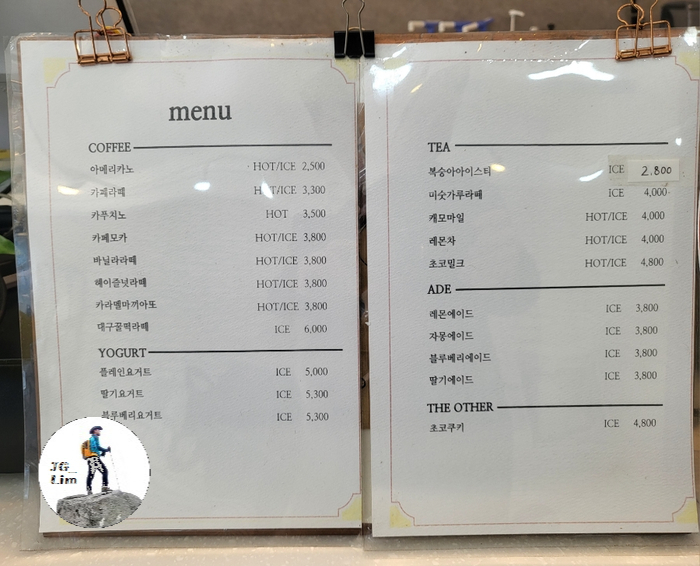 menu
COFFEE
아메리카노 HOT/ICE 2,500
카페라떼 HOT/ICE 3,300
카푸치노 HOT 3,500
카페모카 HOT/ICE 3,800
바닐라라떼 HOT/ICE 3,800
헤이즐넛라떼 HOT/ICE 3,800
카라멜마끼아또 HOT/ICE 3,800
대구꿀떡라떼 ICE 6,000
YOGURT
플레인요거트 ICE 5,000
딸기요거트 ICE 5,300
블루베리요거트 ICE 5,300
JG_
Lim
TEA
복숭아아이스티 ICE 2.800
미숫가루라떼 ICE 4,000
캐모마일 HOT/ICE 4,000
레몬차 HOT/ICE 4,000
초코밀크 HOT/ICE 4,800
ADE
레몬에이드 ICE 3,800
자몽에이드 ICE 3,800
블루베리에이드 ICE 3,800
딸기에이드 ICE 3,800
THE OTHER
초코쿠키 ICE 4,800